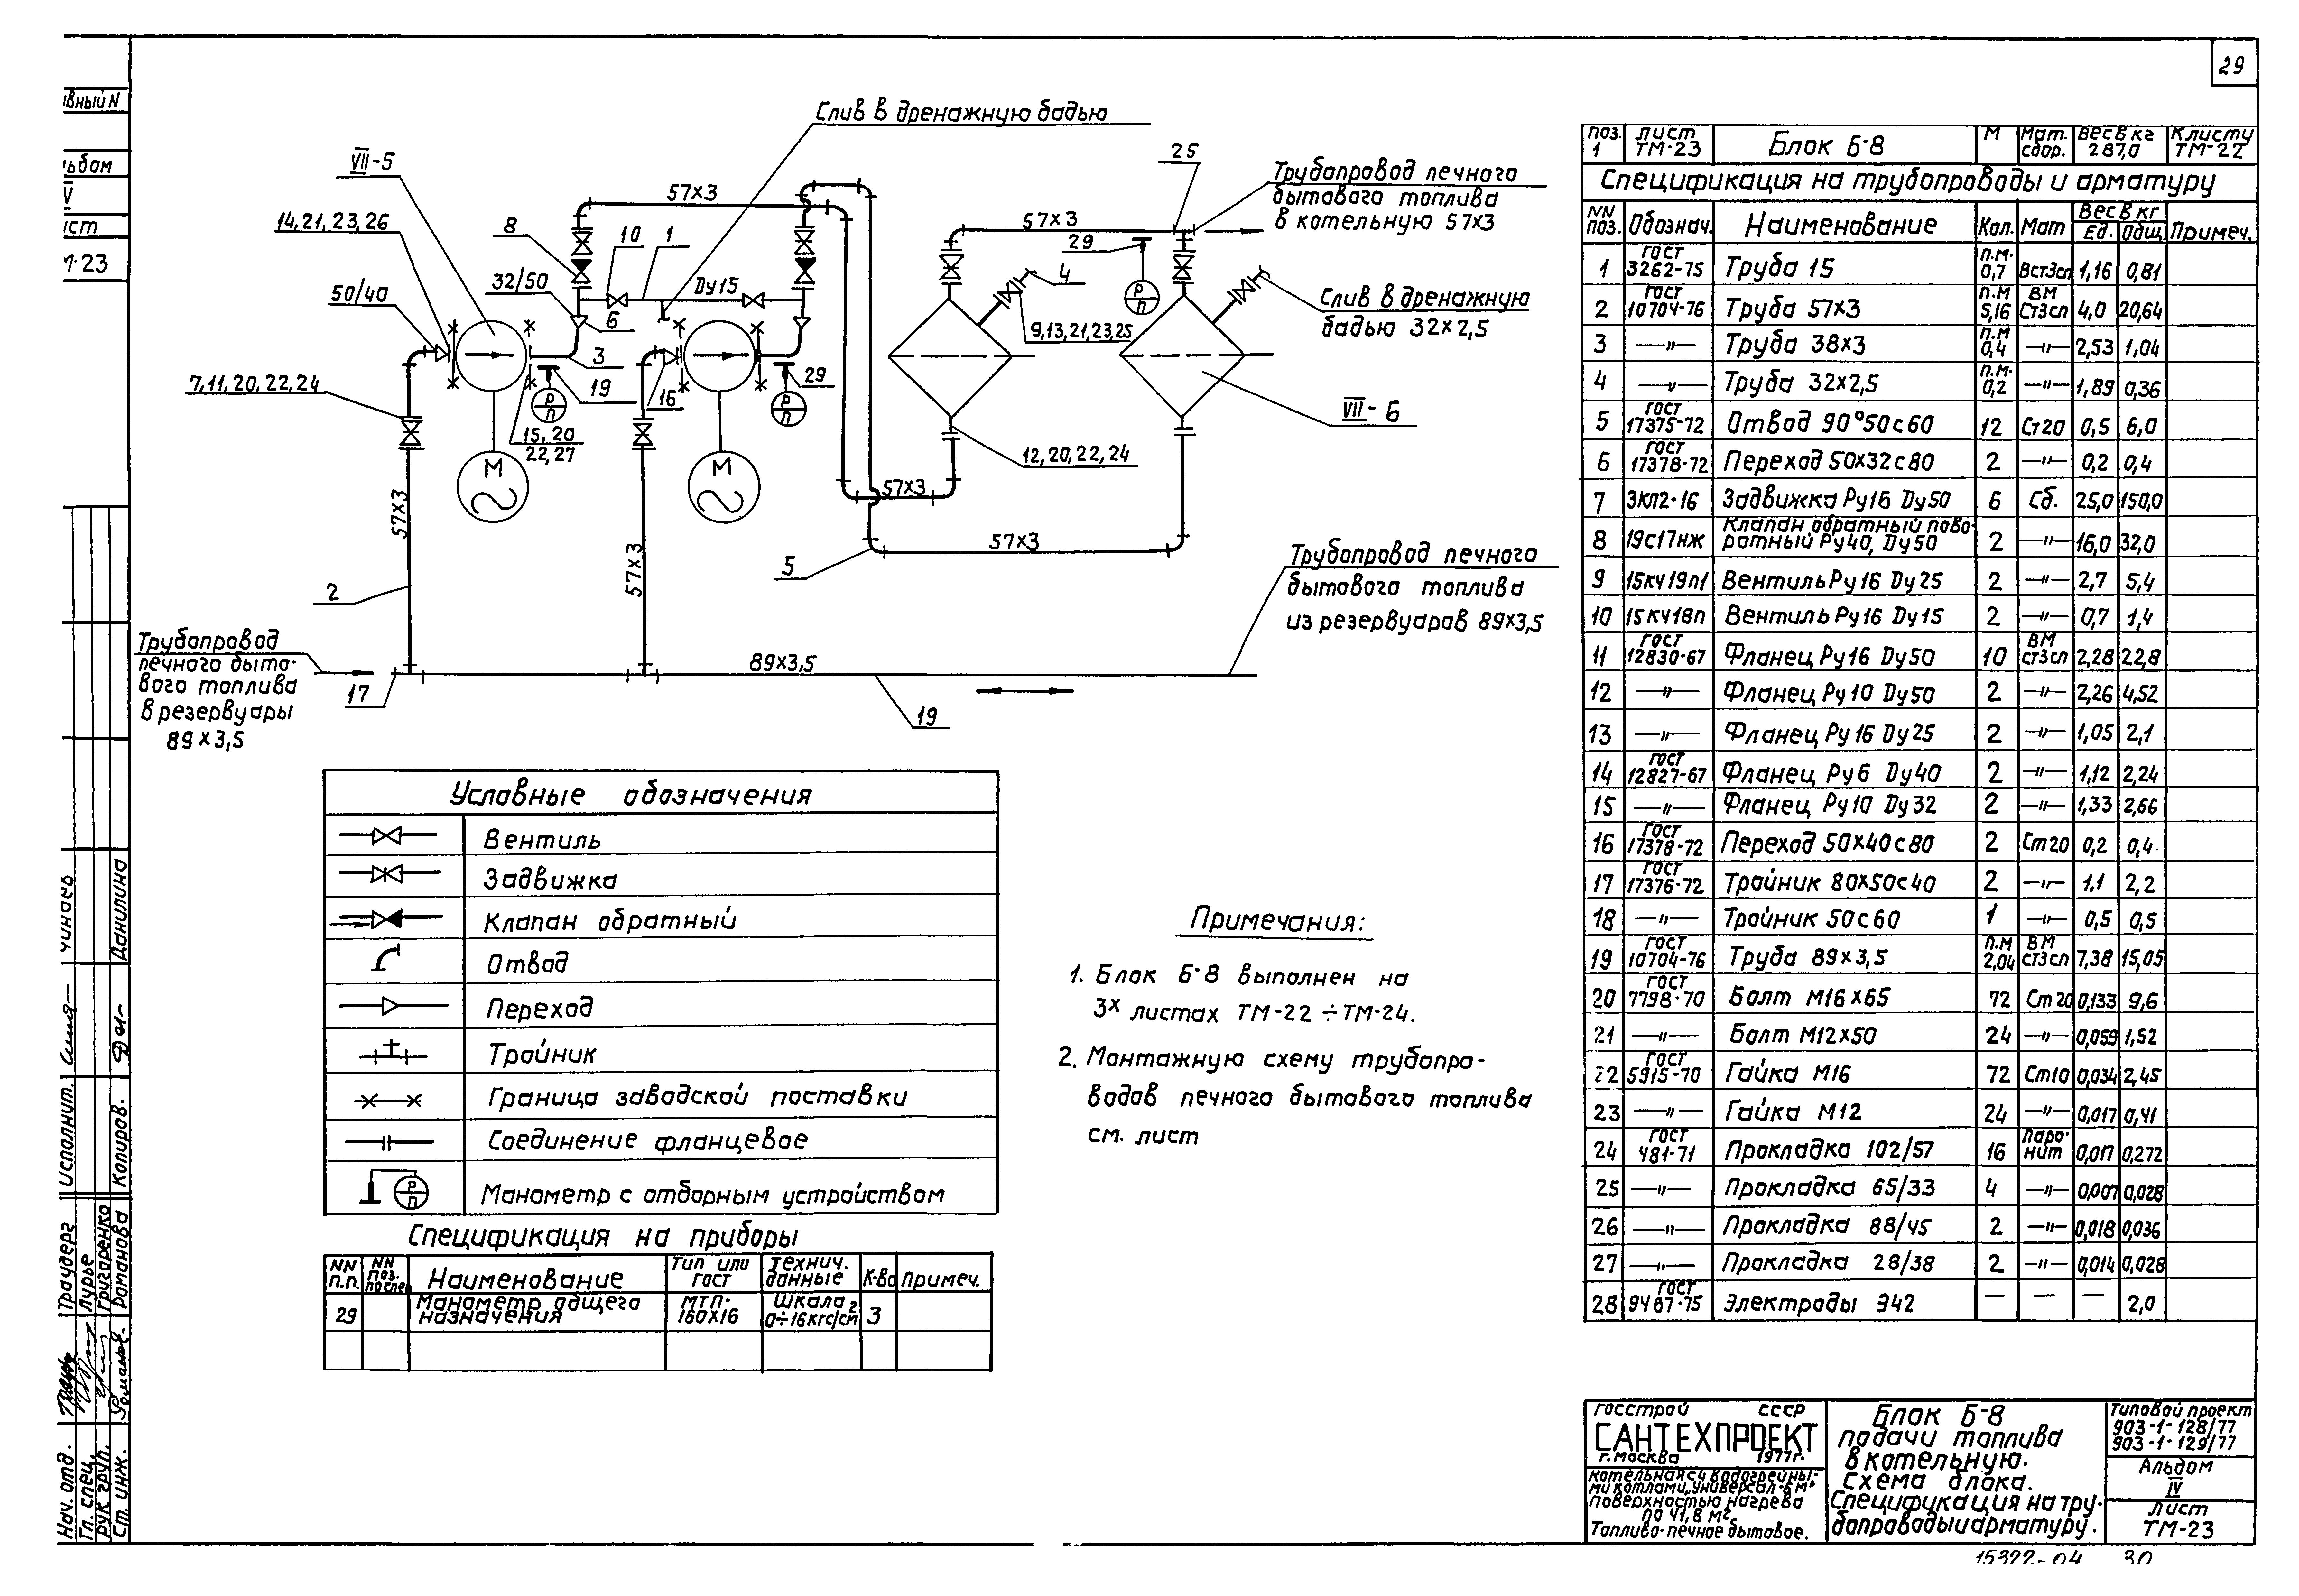 29
Слив в дренажную бадью
VII-5
25
Трубопровод печного
бытового топлива
в котельную 57×3
57×3
57×3
14, 21, 23, 26
8
10
1
29
4
50/40
32/50
Ду15
6
Слив в дренажную
бадью 32×2,5
9,13,21,23,25
3
7, 11, 20, 22, 24
19
29
16
P
П
P
П
P
П
VII-6
15, 20
22, 27
12, 20, 22, 24
М
М
57×3
57×3
57×3
57×3
5
2
Трубопровод печного
бытового топлива
из резервуаров 89×3,5
Трубопровод
печного быто-
вого топлива
в резервуары
89×3,5
17
89×3,5
19
Условные обозначения
Вентиль
Задвижка
Клапан обратный
Отвод
Переход
Тройник
Граница заводской поставки
Соединение фланцевое
P
П
Манометр с отборным устройством
Спецификация на приборы
NN п.п. NN поз. по спец. Наименование Тип или ГОСТ Технич. данные К-во Примеч.
29 Манометр общего назначения МТП-160×16 Шкала 0÷16кгс/см2 3
Примечания:
1. Блок Б-8 выполнен на
3х листах ТМ-22÷ТМ-24.
2. Монтажную схему трубопро-
водов печного бытового топлива
см. лист
поз. 1 лист ТМ-23 Блок Б-8 М Мат. сбор. Вес в кг 287,0 К листу ТМ-22
Спецификация на трубопроводы и арматуру
NN поз. Обознач. Наименование Кол. Мат Вес в кг Ед. Общ. Примеч.
1 ГОСТ 3262-75 Труба 15 п.м. 0,7 Вст3сп 1,16 0,81
2 ГОСТ 10704-76 Труба 57×3 п.м 5,16 ВМ Ст3сп 4,0 20,64
3 —"— Труба 38×3 п.м 0,4 —"— 2,53 1,04
4 —"— Труба 32×2,5 п.м. 0,2 —"— 1,89 0,36
5 ГОСТ 17375-72 Отвод 90°50с60 12 Ст20 0,5 6,0
6 ГОСТ 17378-72 Переход 50×32с80 2 —"— 0,2 0,4
7 ЗКЛ2-16 Задвижка Ру16 Ду50 6 Сб. 25,0 150,0
8 19с17нж Клапан обратный поворотный Ру40, Ду50 2 —"— 16,0 32,0
9 15кч19п1 Вентиль Ру16 Ду25 2 —"— 2,7 5,4
10 15кч18п Вентиль Ру16 Ду15 2 —"— 0,7 1,4
11 ГОСТ 12830-67 Фланец Ру16 Ду50 10 ВМ ст3сп 2,28 22,8
12 —"— Фланец Ру10 Ду50 2 —"— 2,26 4,52
13 —"— Фланец Ру16 Ду25 2 —"— 1,05 2,1
14 ГОСТ 12827-67 Фланец Ру6 Ду40 2 —"— 1,12 2,24
15 —"— Фланец Ру10 Ду32 2 —"— 1,33 2,66
16 ГОСТ 17378-72 Переход 50×40с80 2 Ст20 0,2 0,4
17 ГОСТ 17376-72 Тройник 80×50с40 2 —"— 1,1 2,2
18 —"— Тройник 50с60 1 —"— 0,5 0,5
19 ГОСТ 10704-76 Труба 89×3,5 п.м 2,04 ВМ ст3сп 7,38 15,05
20 ГОСТ 7798-70 Болт М16×65 72 Ст20 0,133 9,6
21 —"— Болт М12×50 24 —"— 0,059 1,52
22 ГОСТ 5915-70 Гайка М16 72 Ст10 0,034 2,45
23 —"— Гайка М12 24 —"— 0,017 0,41
24 ГОСТ 481-71 Прокладка 102/57 16 Паронит 0,017 0,272
25 —"— Прокладка 65/33 4 —"— 0,007 0,028
26 —"— Прокладка 88/45 2 —"— 0,018 0,036
27 —"— Прокладка 28/38 2 —"— 0,014 0,028
28 ГОСТ 9467-75 Электроды Э42 — — — 2,0
Госстрой СССР
САНТЕХПРОЕКТ
г. Москва 1977г.
Котельная с 4 водогрейны-
ми котлами „Универсал-6м"
поверхностью нагрева
по 41,8 м2
Топливо-печное бытовое.
Блок Б-8
подачи топлива
в котельную.
Схема блока.
Спецификация на тру-
бопроводы и арматуру.
Типовой проект
903-1-128/77
903-1-129/77
Альбом
IV
Лист
ТМ-23
15322-04 30
ивный N
льбом
IV
ист
М-23
Нач. отд. Траубере
Гл. спец. Лурье
Рук груп. Григоренко
Ст. инж. Романова
Исполнит. чинаев
Копиров. Данилина